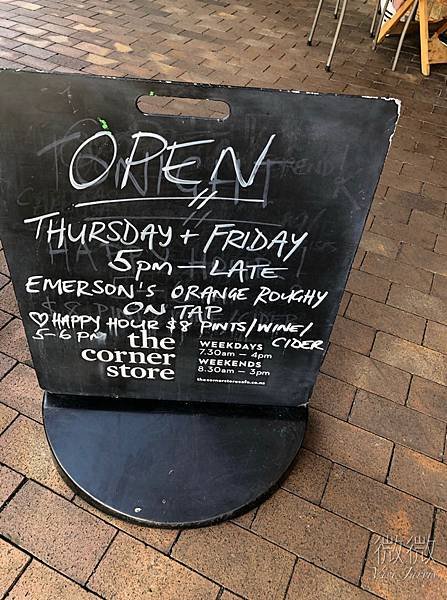 OPEN
THURSDAY + FRIDAY
5PM — LATE
EMERSON'S ORANGE ROUGHY
ON TAP
♡ HAPPY HOUR $8 PINTS/WINE/
5-6 PM CIDER
the
corner
store
WEEKDAYS
7.30am — 4pm
WEEKENDS
8.30am — 3pm
thecornerstorecafe.co.nz
微微